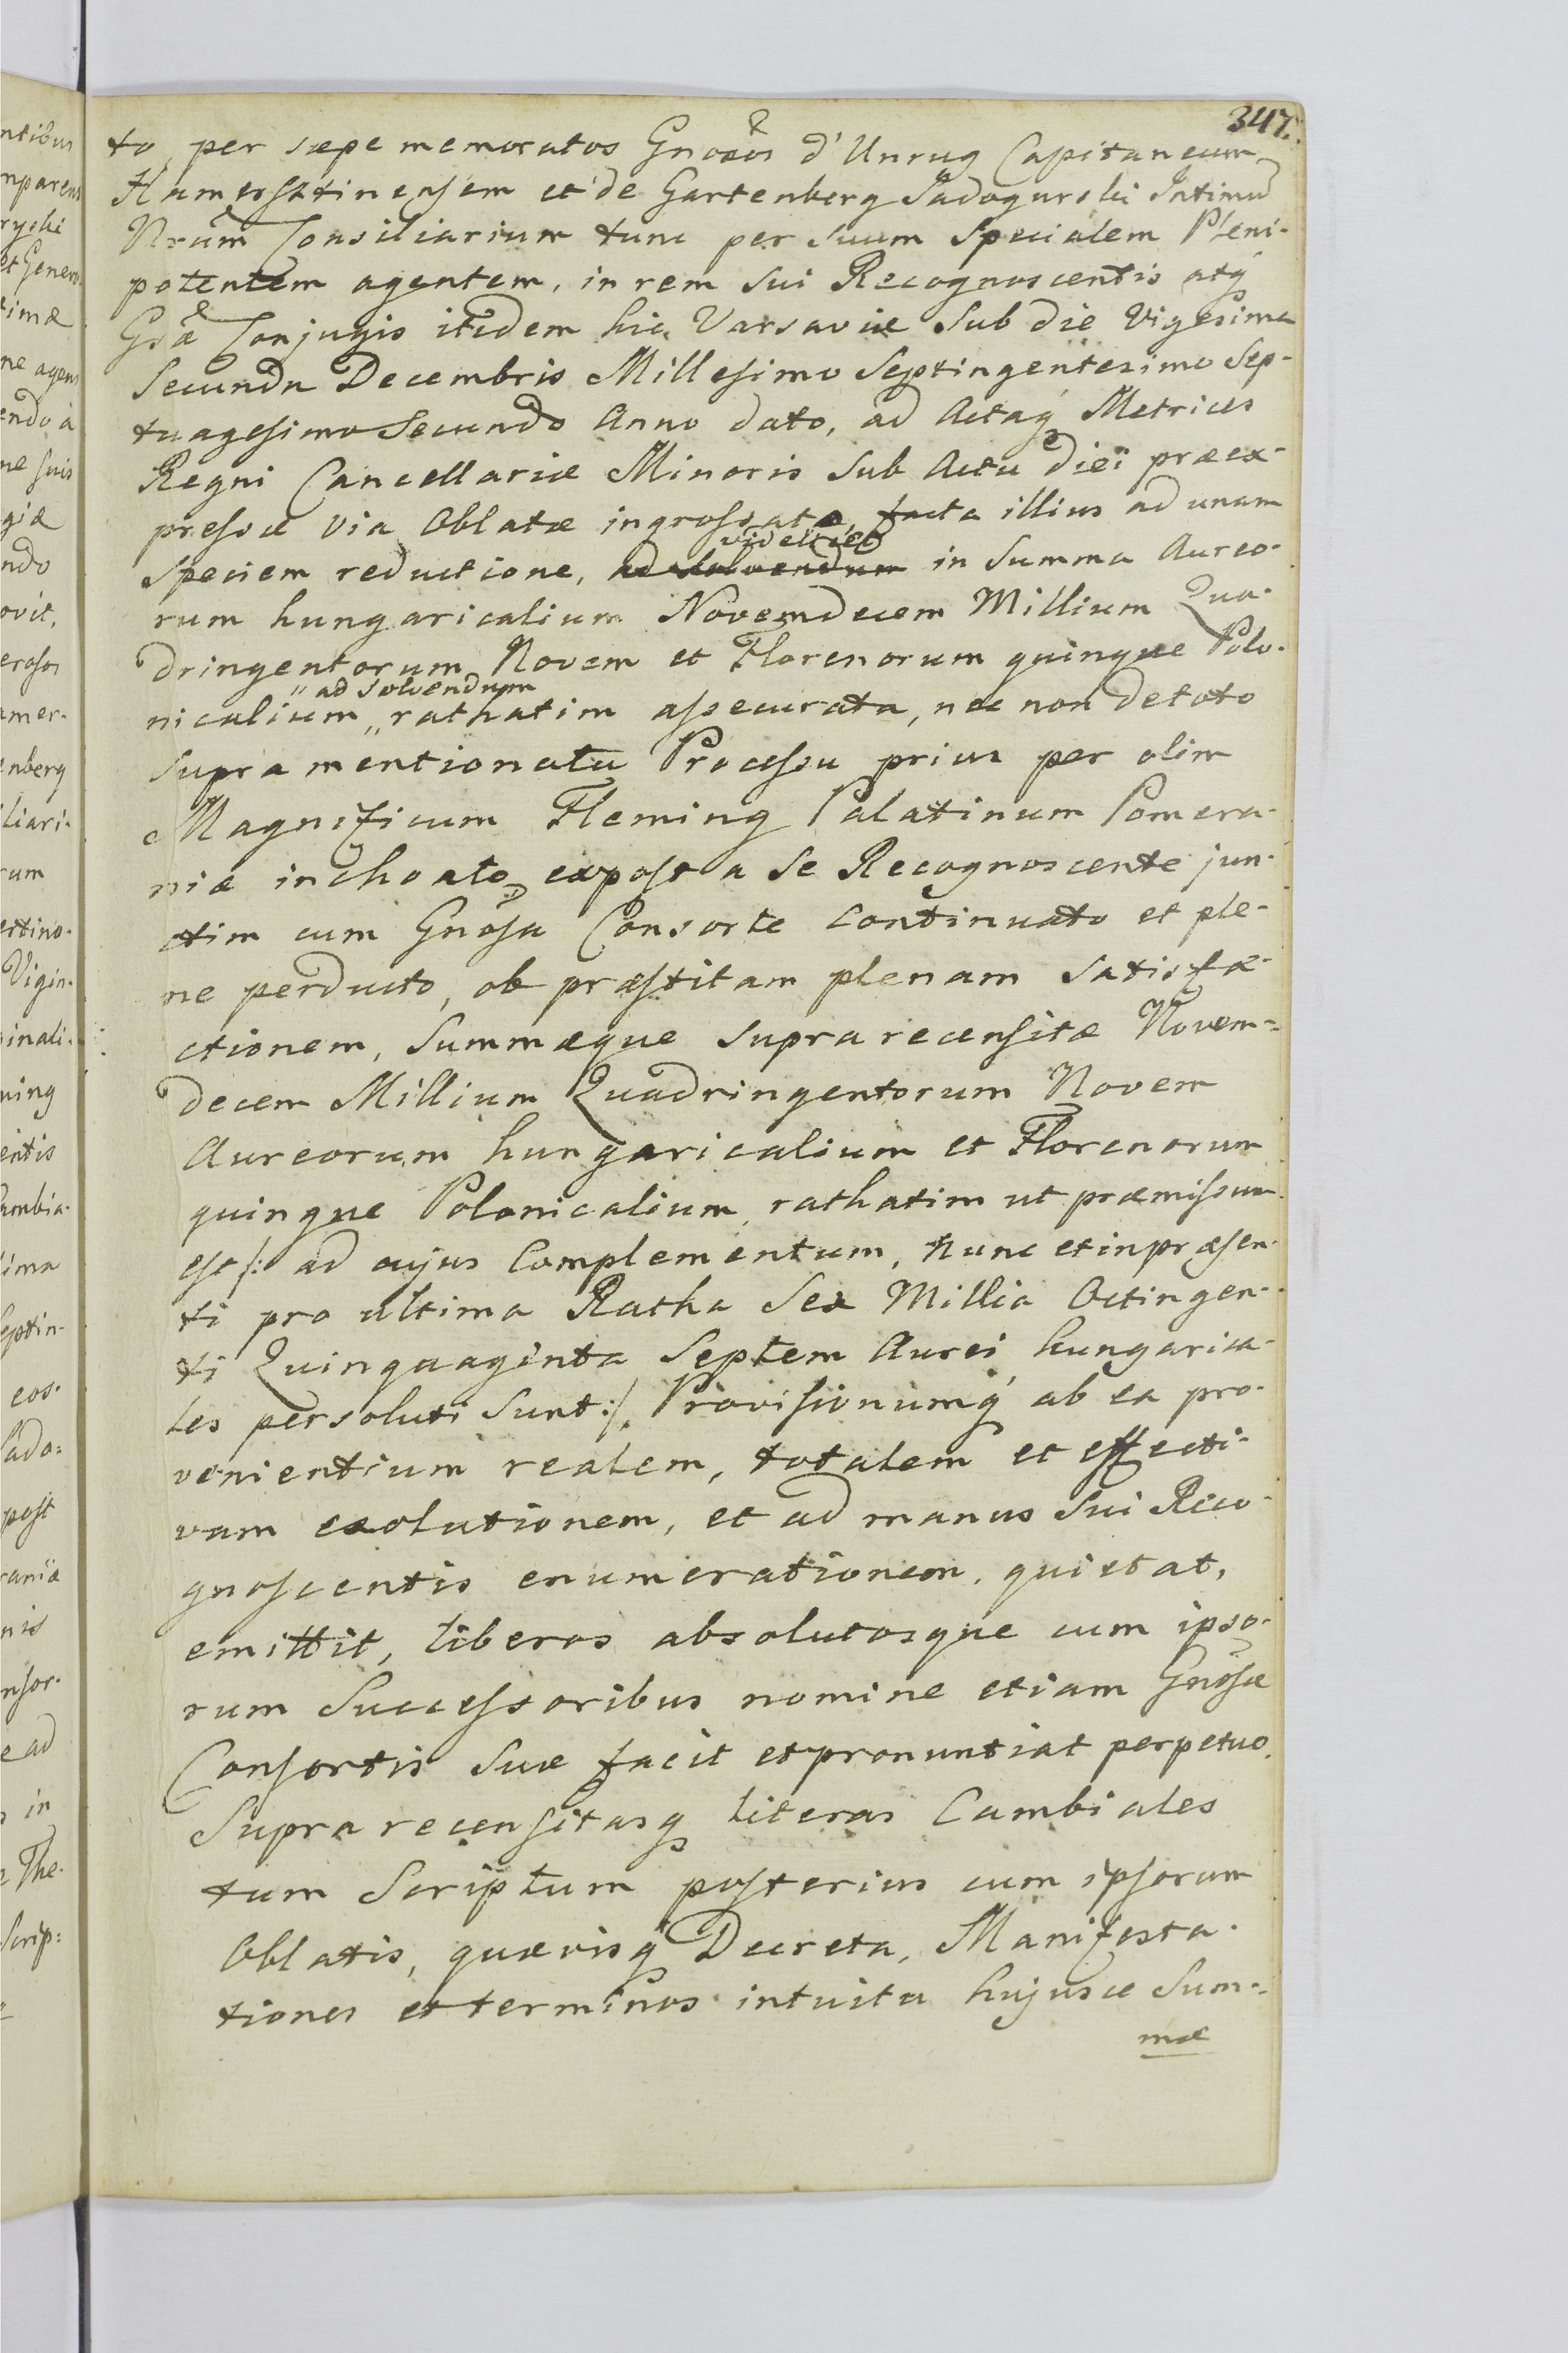 347.
to per sæpe memoratos Gnosos d'Unrug Capitaneum
Hamersztinensem et de Gartenberg Sadogurski Intimum
Nrum Consiliarium tunc per suum Specialem Pleni-
potentem agentem, in rem sui Recognoscentis atq
Gsæ Conjugis itidem hic Varsaviæ Sub die Vigesima
Secunda Decembris Millesimo Septingentesimo Sep-
tuagesimo Secundo Anno dato, ad Actaq Metrices
Regni Cancellariæ Minoris Sub Actu diei præex-
pressæ via Oblatæ ingrossato, facta illius ad unam
videlicet
Speciem reductione, ad solvendum in Summa Aureo-
rum hungaricalium Novemdecem Millium Qua-
dringentorum Novem et Florenorum quinque Polo-
" ad solvendum
nicalium " rathatim assecurata, nec non de toto
supra mentionato Processu prius per olim
Magnificum Fleming Palatinum Pomera-
niæ inchoato, expost a se Recognoscente jun-
ctim cum Gnosa Consorte continuato et ple-
ne perducto, ob præstitam plenam satisfa-
ctionem, Summæque supra recensitæ Novem-
decem Millium Quadringentorum Novem
Aureorum hungaricalium et Florenorum
quinque Polonicalium, rathatim ut præmissum
est /: ad cujus Complementum, nunc et in præsen-
ti pro ultima Ratha Sex Millia Octingen-
ti Quinquaginta Septem Aurei hungarica-
les persoluti Sunt :/ Provisionumq ab ea pro-
venientium realem, totalem et effecti-
vam exolutionem, et ad manus sui Reco-
gnoscentis enumerationem, quietat,
emittit, liberos absolutosque cum ipso-
rum Successoribus nomine etiam Gnosæ
Consortis suæ facit et pronuntiat perpetuo.
Supra recensitasq literas Cambiales
tum Scriptum posterius cum ipsorum
Oblatis, quævisq Decreta, Manifesta-
tiones et terminos intuitu hujusce Sum-
mæ